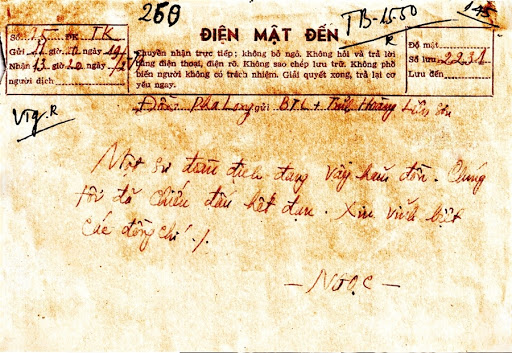 250
TB-1550
ĐIỆN MẬT ĐẾN
Số 15 TK
Gửi 11 giờ 0 ngày 19/
Nhận 13 giờ 20 ngày
người dịch
Chuyển nhận trực tiếp; không bỏ ngỏ. Không hỏi và trả lời
bằng điện thoại, điện rõ. Không sao chép lưu trữ. Không phổ
biến người không có trách nhiệm. Giải quyết xong, trả lại cơ
yếu ngay.
Độ mật
Số lưu 2231
Lưu đến
Đồn: Pha Long gửi BTL + Tỉnh Hoàng Liên Sơn
Một sư đoàn địch đang vây hãm đồn. Chúng
tôi đã chiến đấu hết đạn. Xin vĩnh biệt
các đồng chí ./.
— NGỌC —